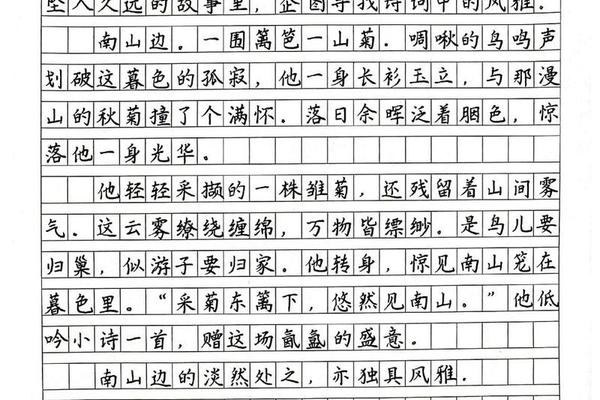 坠入久远的故事里，企图寻找诗词中的风雅.
南山边。一围篱笆一山菊. 啁啾的鸟鸣声
划破这暮色的孤寂，他一身长衫玉立，与那漫
山的秋菊撞了个满怀。落日余晖泛着胭色，惊
落他一身光华。
他轻轻采撷的一株雏菊，还残留着山间雾
气. 这云雾缭绕缠绵，万物皆缥缈. 是鸟儿要
归巢，似游子要归家。他转身，惊见南山笼在
暮色里。“采菊东篱下，悠然见南山。”他低
吟小诗一首，赠这场氤氲的盛意.
南山边的淡然处之，亦独具风雅.